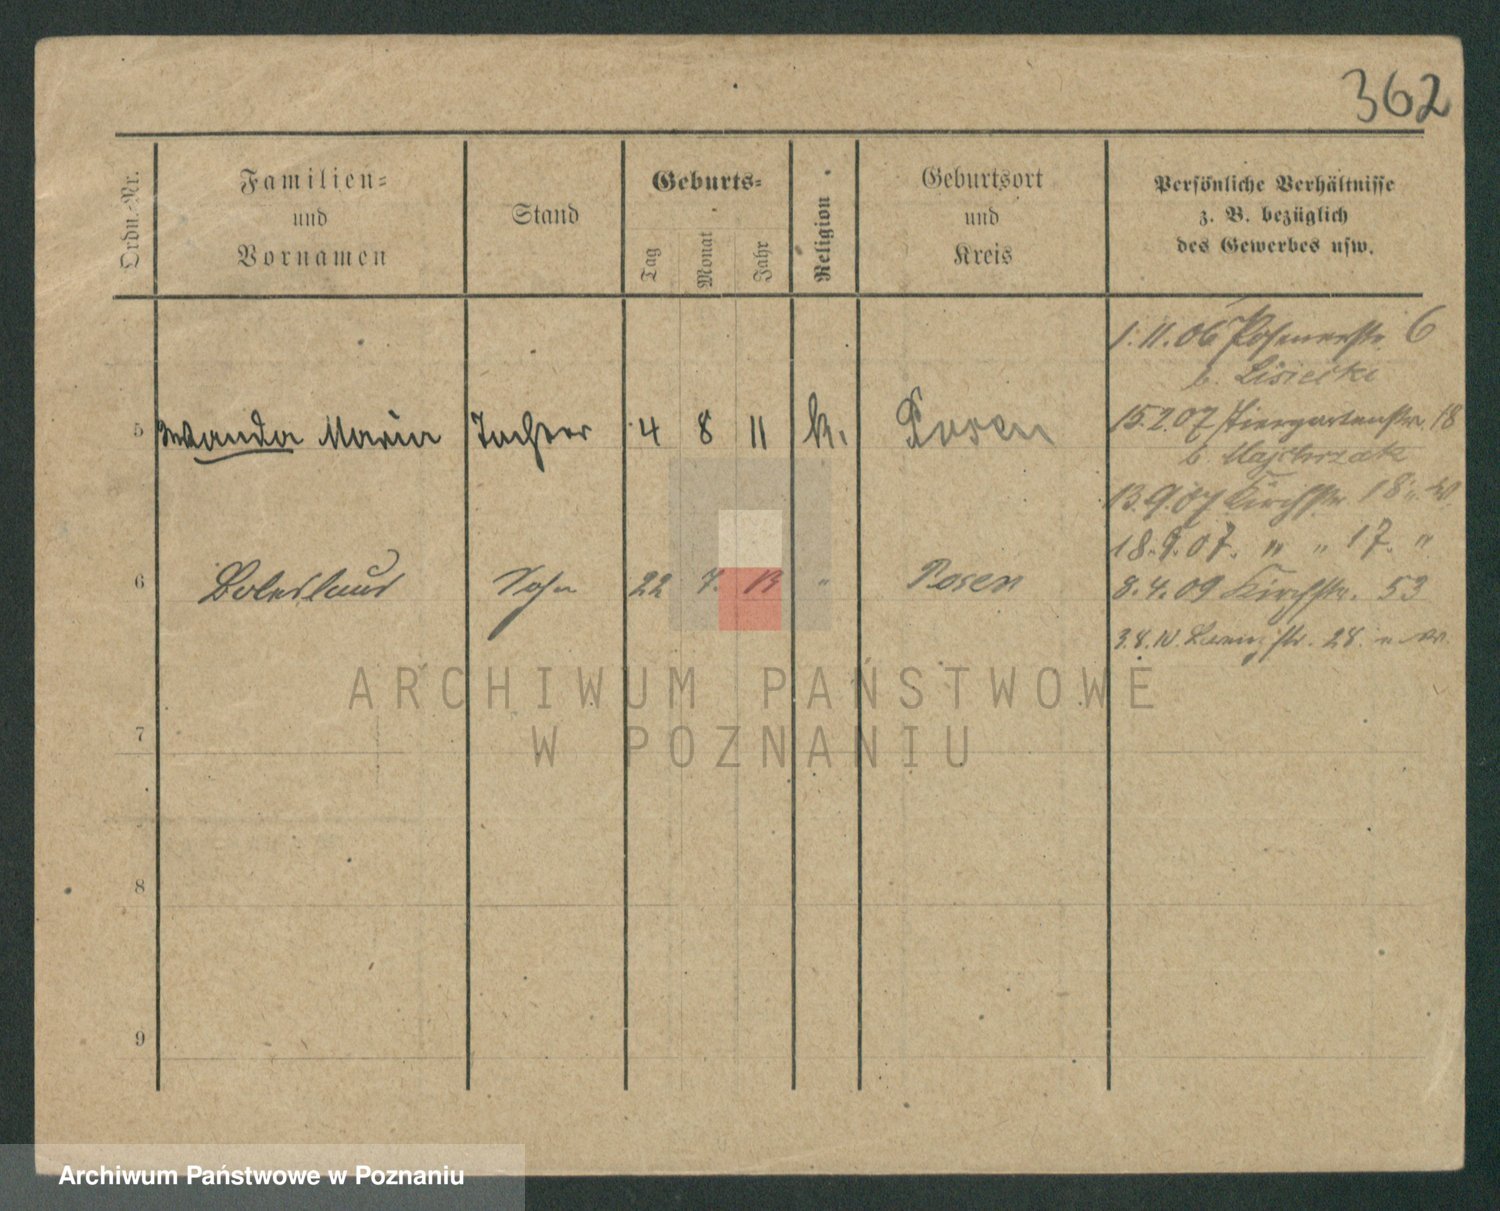 362
Ordn.-Nr.
Familien-
und
Vornamen
Stand
Geburts-
Tag
Monat
Jahr
Religion
Geburtsort
und
Kreis
Persönliche Verhältnisse
z. B. bezüglich
des Gewerbes usw.
1.11.06 Posenerstr. 6
b. Lisiecki
5 Wanda Maria Tochter 4 8 11 k. Posen
15.2.07 Tiergartenstr. 18
b. Majchrzak
13.9.07 Kirchstr. 18 u. W.
18.9.07. " " 17. "
6 Boleslaus Sohn 22 7. 13 " Posen
8.4.09 Kirchstr. 53
3.8.10. str. 28.
7
8
9
ARCHIWUM PAŃSTWOWE
W POZNANIU
Archiwum Państwowe w Poznaniu